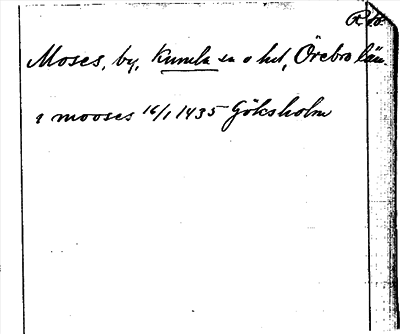 Moses, by, Kumla sn o hd, Örebro län
i mooses 16/1 1435 Göksholm